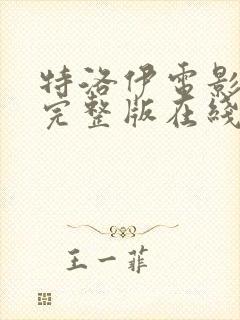 特洛伊电影
完整版在线
王一菲